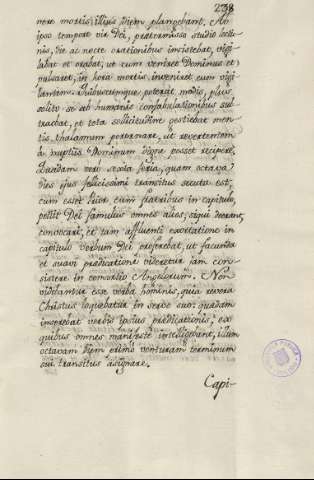 238
nere mortis illius diem plangebant. Ab
ipso tempore vir Dei, praetermisso studio lectio
nis, die ac nocte orationibus insistebat, vigi
labat et orabat, ut cum veniret Dominus et
pulsaret, in hora mortis, inveniret eum vigi
lantem. Quibuscumque poterat modis, plus
solito se ab humanis confabulationibus sub
trahebat, et tota sollicitudine gestiebat men
tis thalamum praeparare, ut revertentem
à nuptiis Dominum digne posset recipere.
Quadam vero sexta feria, quam octava
dies ejus felicissimi transitus secuta est,
cum esset Prior cum fratribus in capitulo,
petiit Dei famulus omnes alios, siqui deerant,
convocari, et tam affluenti exortatione in
capitulo verbum Dei proferebat, ut facunda
et suavi praedicatione videretur jam con-
sistere in consortio Angelorum. Non
videbantur esse verba hominis, quia revera
Christus loquebatur in servo suo: quaedam
inserebat verbis ipsius praedicationis, ex
quibus omnes manifeste intelligebant, illum
octavam diem primo venturam terminum
sui transitus assignare.
Capi-